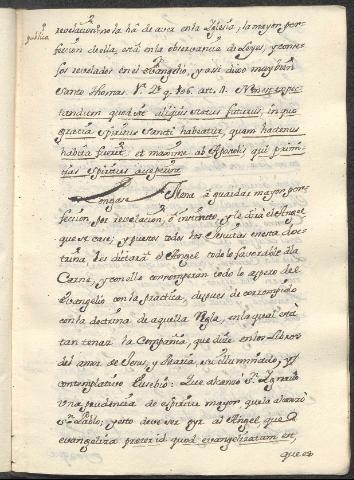 publica
revelacion no la há de aver en la Iglesia; la mayor per-
feccion de ella, está en la observancia de Leyes, y conse-
jos revelados en el evangelio, y assi dixo muy bien
Santo Thomas 1ª 2ę q. 106. art. 4. Non est expec-
tandum quod sit aliquis status futurus, in quo
gracia Spiritus Sancti habeatur, quam hactenus
habita fuerit et maxime ab Apostolis, qui primi-
tias Spiritus acceperunt.
Pongase Mona á guardar mayor per-
feccion por revelacion, ó instincto, y le dirá el Angel
que se case; y puestos todos los Jesuitas en esta doc-
trina les dictará el Angel todo lo favorable á la
Carne, y con ella corromperán todo lo aspero del
Evangelio con la practica, despues de corrompido
con la doctrina de aquella Regla, en la qual está
tan tenaz la Compañia, que dize en los Libros
del amor de Jesus, y Maria, su illuminado, y
contemplativo Eusebio: Que alcanzó Sn. Ignacio
una prudencia de espiritu mayor que la alcanzó
Sn. Pablo; y esto deve ser por el Angel, que
evangeliza preter id quod evangelizatum est,
que es